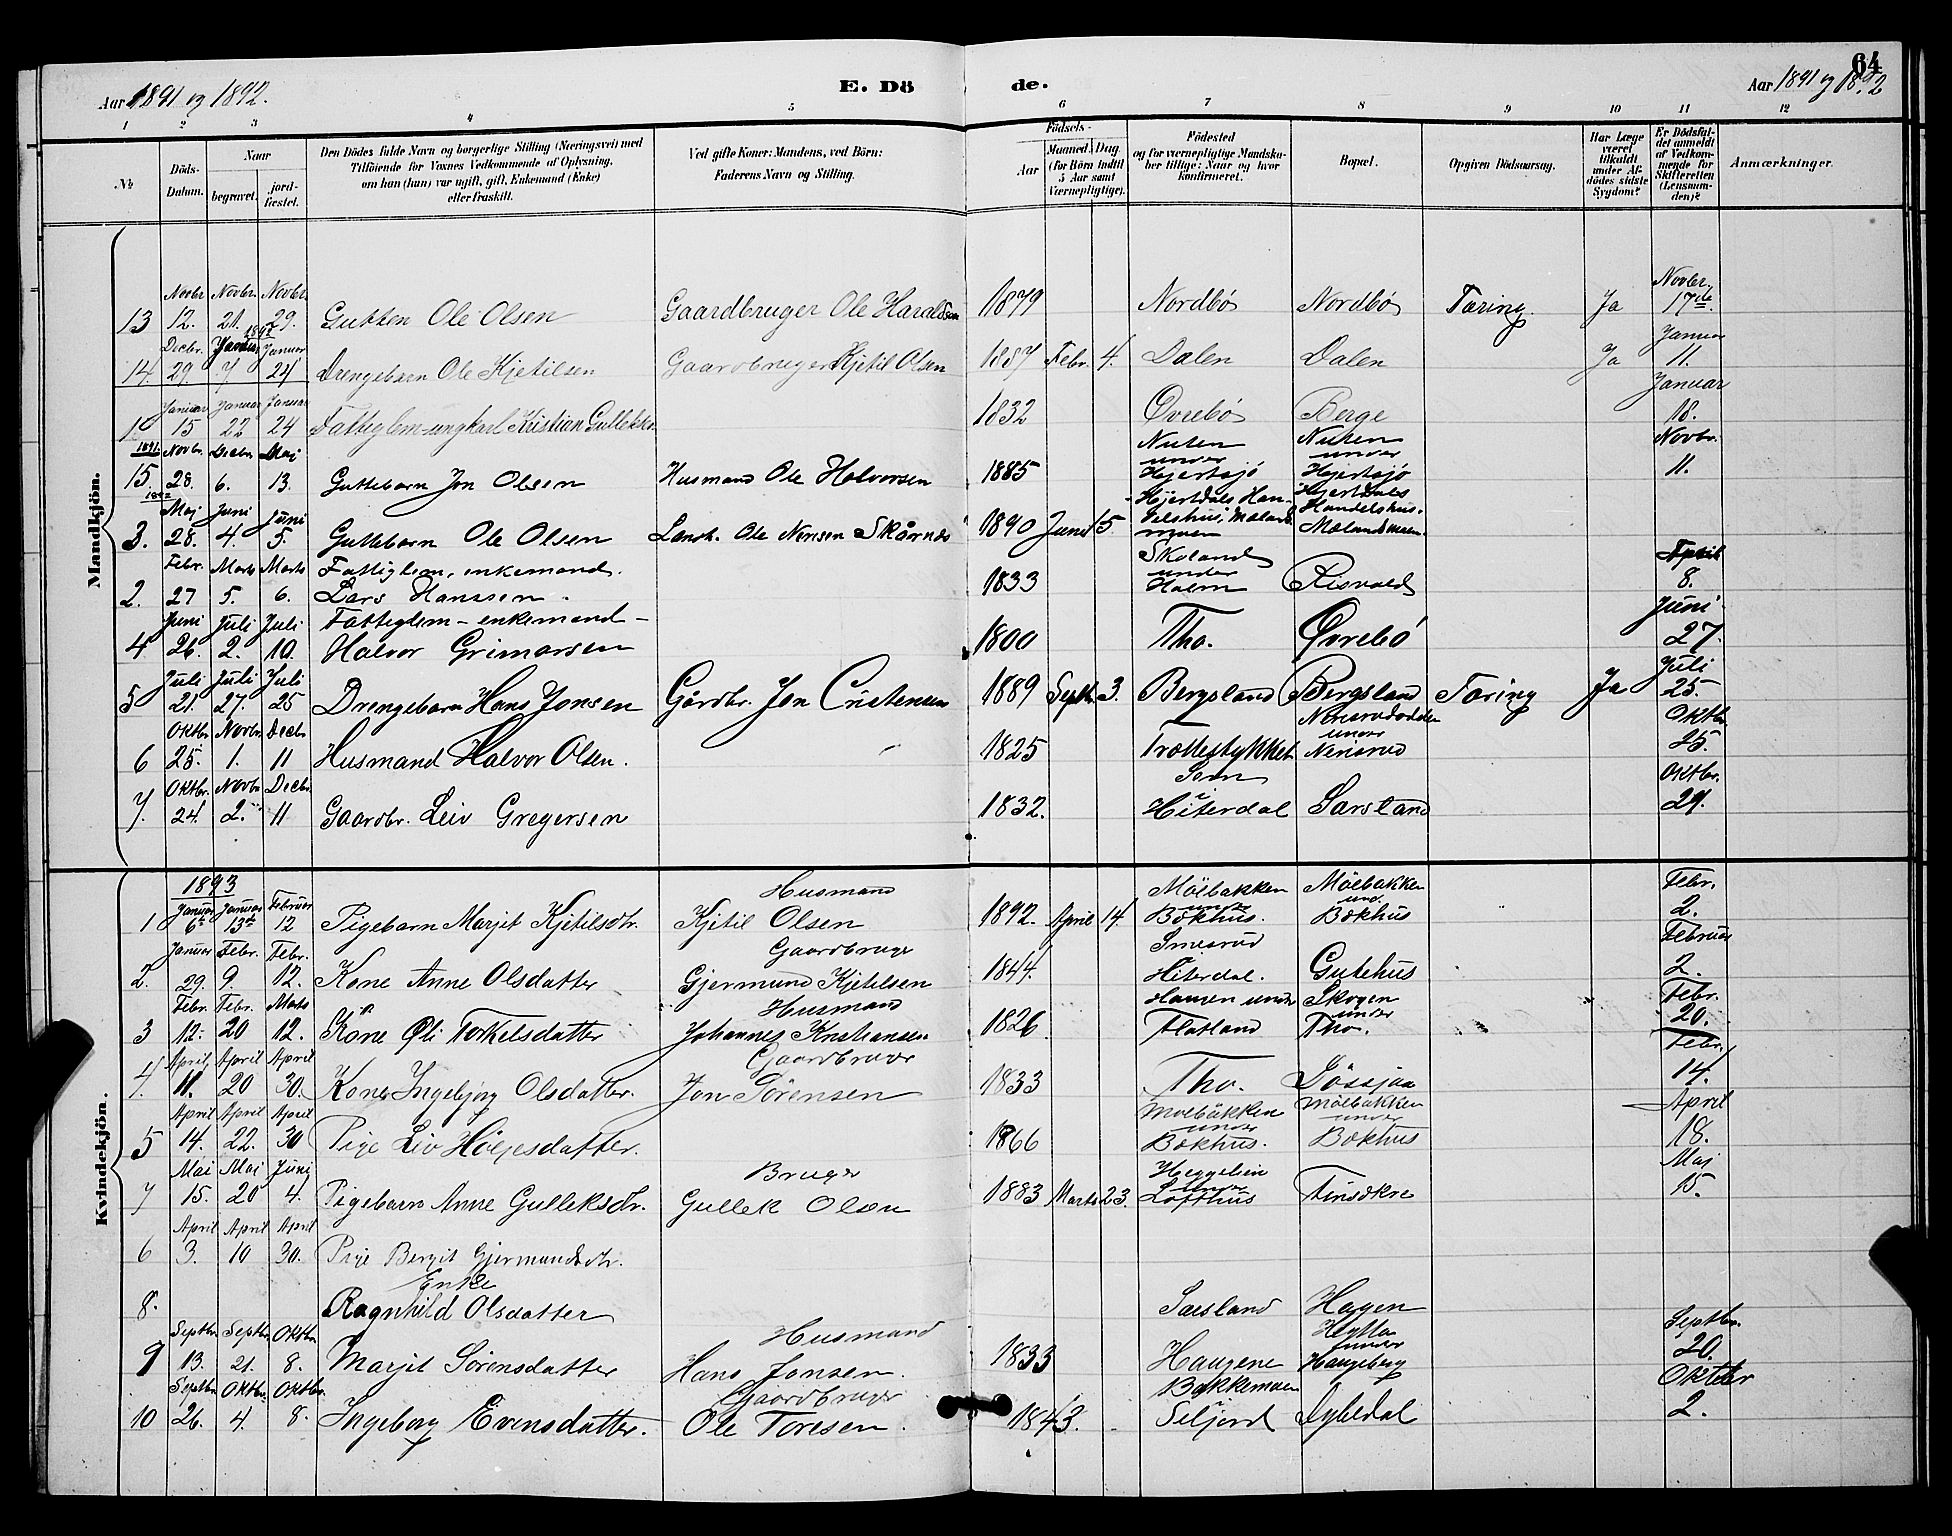 64
Aar 1891 og 1892. E. Dö de. Aar 1891 og 1892
1 2 3 4 5 6 7 8 9 10 11 12
No
Döds-Datum.
Naar
begravet.
jord-fæstet.
Den Dödes fulde Navn og borgerlige Stilling (Næringsvei) med
Tilföiende for Voxnes Vedkommende af Oplysning,
om han (hun) var ugift, gift, Enkemand (Enke)
eller fraskilt.
Ved gifte Koner: Mandens, ved Börn:
Faderens Navn og Stilling.
Födsels-
Aar
Maaned. Dag
(for Börn indtil
5 Aar samt
Værnepligtige).
Födested
og for værnepligtige Mandska-
ber tillige: Naar og hvor
konfirmeret.
Bopæl.
Opgiven Dödsaarsag.
Har Læge
været
tilkaldt
under Af-
dödes sidste
Sygdom?
Er Dödsfal-
det anmeldt
af Vedkom-
mende for
Skifteretten
(Lensman-
den)?
Anmærkninger.
Mandkjön.
Novbr Novbr. Novbr. Novbr.
13 12. 21. 29. Gutten Ole Olsen Gaardbruger Ole Haraldsen 1879 Nordbø Nordbø Tæring Ja 17de
1892
Decbr. Januar Januar Januar
14. 29. 7 24 Drengebarn Ole Kjetilsen Gaardbruger Kjetil Olsen 1887 Febr. 4. Dalen Dalen Ja 11.
Januar Januar Januar Januar
1 15 22 24 Fattiglem-ungkarl Kristian Gulleks. 1832 Øvrebø Berge 18.
1891 Novbr. Decbr. Maj Nuten under Nuten under Novbr.
15. 28. 6. 13. Guttebarn Jon Olsen Husmand Ole Halvorsen 1885 Hjertsjø Hjertsjø 11.
1892 Maj Juni Juni Hjertdals Han- Hjertdals Handelshus.
3. 28. 4. 5. Guttebarn Ole Olsen Landh. Ole Nensen Skårnes 1890 Juni 15. delshus, Mælandsmoen Mælandsmoen
Febr. Marts Marts Fattiglem, enkemand. Skoland under April
2. 27 5. 6. Lars Hanssen. 1833 Holm Risvold 8.
Juni Juli Juli Fattiglem-enkemand- Juni
4 26. 2. 10. Halvor Grimarsen 1800 Tho. Øvrebø 27.
Juli Juli Juli Juli
5 21. 27. 25 Drengebarn Hans Jonsen Gårdbr. Jon Cristensen 1889 Septbr. 3. Bergsland Bergsland Tæring Ja 25.
Oktbr. Novbr. Decbr. Nerisrudodden under Oktbr.
6 25. 1. 11 Husmand Halvor Olsen. 1825 Trættestykket Nerisrud 25.
Oktbr. Novbr. Decbr. Sem i Oktbr.
7. 24. 2. 11 Gaardbr. Leiv Gregersen 1832. Hiterdal Sarsland 29.
Kvindekjön.
1893
Januar Januar Februar Husmand Möebakken under Möebakken und. Febr.
1 6te 13de 12 Pigebarn Marjit Kjetilsdtr. Kjetil Olsen 1892. April 14. Bøkhus. Bøkhus 2.
Januar Febr. Febr. Gaardbruger Smesrud Februar
2. 29. 9. 12. Kone Anne Olsdatter Gjermund Kjetilsen 1844. Hiterdal. Gutehus 2.
Febr. Febr. Marts Husmand Haugen under Skogen under Febr.
3 12. 20 12. Kone Øli Torkelsdatter Johannes Kristiansen 1826 Flatland Tho. 20.
April April April Gaardbruger Febr.
4. 11. 20 30. Kone Ingebjørg Olsdatter. Jon Sörensen 1833 Tho. Gössjaa 14.
April April April Moebäkken under Möebakken under April
5 14. 22. 30 Pige Liv Hölgesdatter. 1866 Bøkhus. Bøkhus 18.
Maj Maj Juni Bruger Heggelien under Maj
7 15. 20 4. Pigebarn Anne Gulleksdtr. Gullek Olsen 1883 Marts 23. Lofthus Tinsokre 15.
April April April
6 3. 10 30. Pige Bergit Gjermundsdtr.
Enke
8. Ragnhild Olsdatter Sarsland Hagen
Septbr. Septbr. Oktbr. Husmand Hytta under Septbr.
9 13. 21. 8. Marjit Sörensdatter Hans Jonsen. 1833 Haugene Haugeberg 20.
Septbr. Oktbr. Oktbr. Gaardbruger Bakkemoen i Oktober
10 26. 4. 8. Ingeborg Evensdatter. Ole Toresen. 1843. Seljord Dybedal 2.